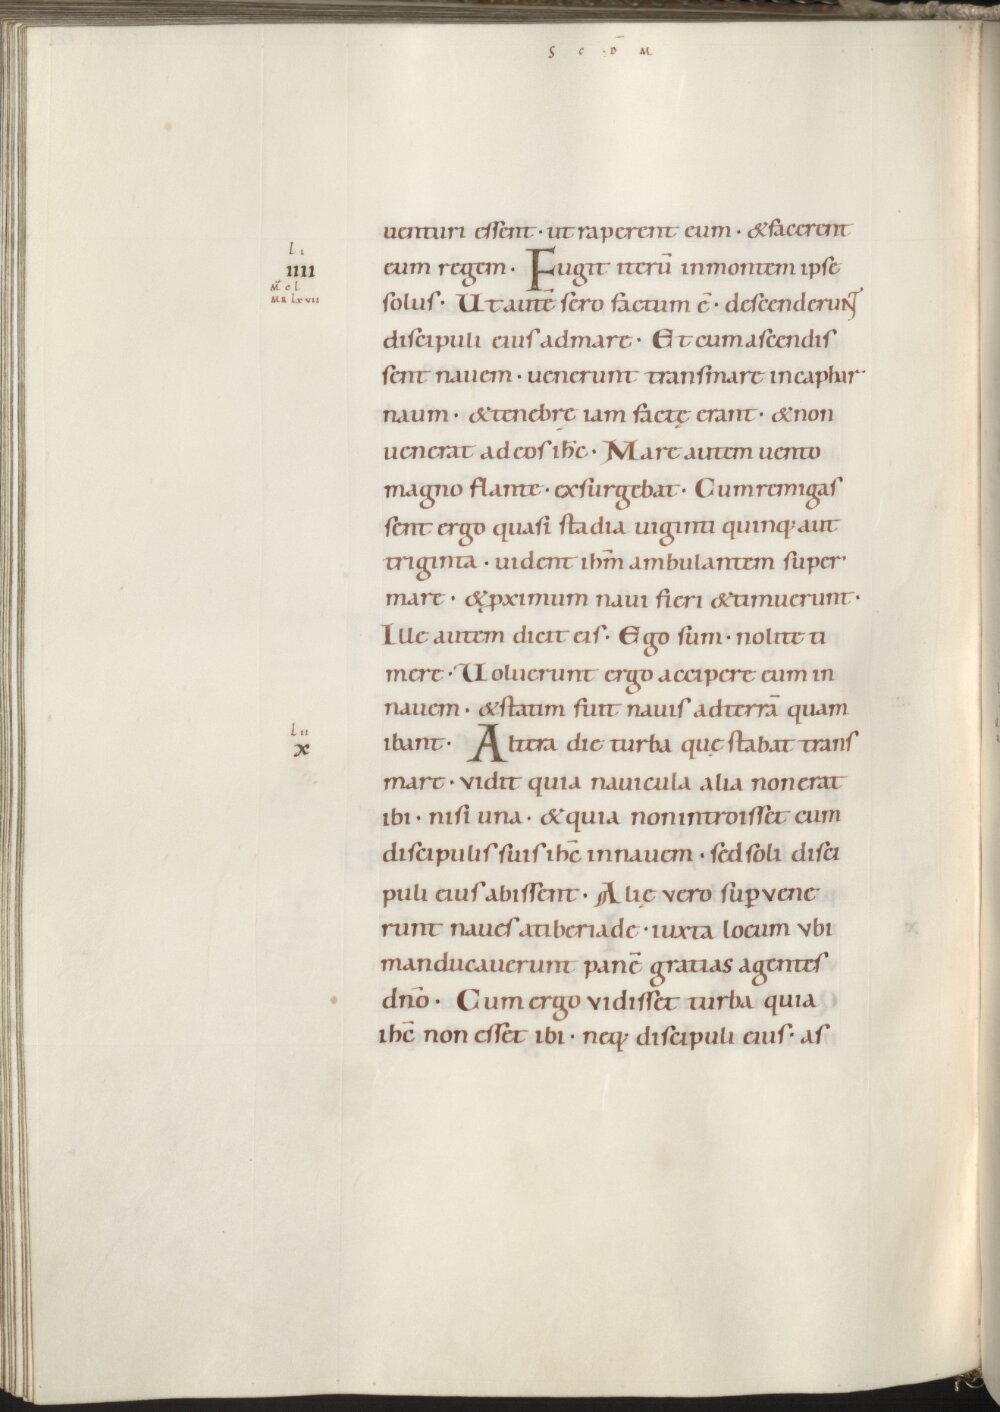 S C D̄ M
uenturi essent · ut raperent eum · &facerent
LI
IIII
M̄ CL
MR LXVII
eum regem · Fugit iterū inmontem ipse
solus · Ut autē sero factum ē · descenderunt
discipuli eius admare · Et cum ascendis
sent nauem · uenerunt transmare incaphar
naum · &tenebrę iam factę erant · &non
uenerat ad eos ihc̄ · Mare autem uento
magno flante · exsurgebat · Cum remigas
sent ergo quasi stadia uiginti quinq; aut
triginta · uident ihm̄ ambulantem super
mare · &ꝓximum naui fieri &timuerunt ·
Ille autem dicit eis · Ego sum · nolite ti
mere · Uoluerunt ergo accipere eum in
nauem · &statim fuit nauis adterrā quam
LII
X
ibant · Altera die turba quę stabat trans
mare · vidit quia nauicula alia non erat
ibi · nisi una · &quia non introisset cum
discipulis suis ihc̄ innauem · sed soli disci
puli eius abissent · Alię vero suꝑvene
runt naues atiberiade · iuxta locum vbi
manducauerunt panē gratias agentes
dn̄o · Cum ergo vidisset turba quia
ihc̄ non esset ibi · neq; discipuli eius · as